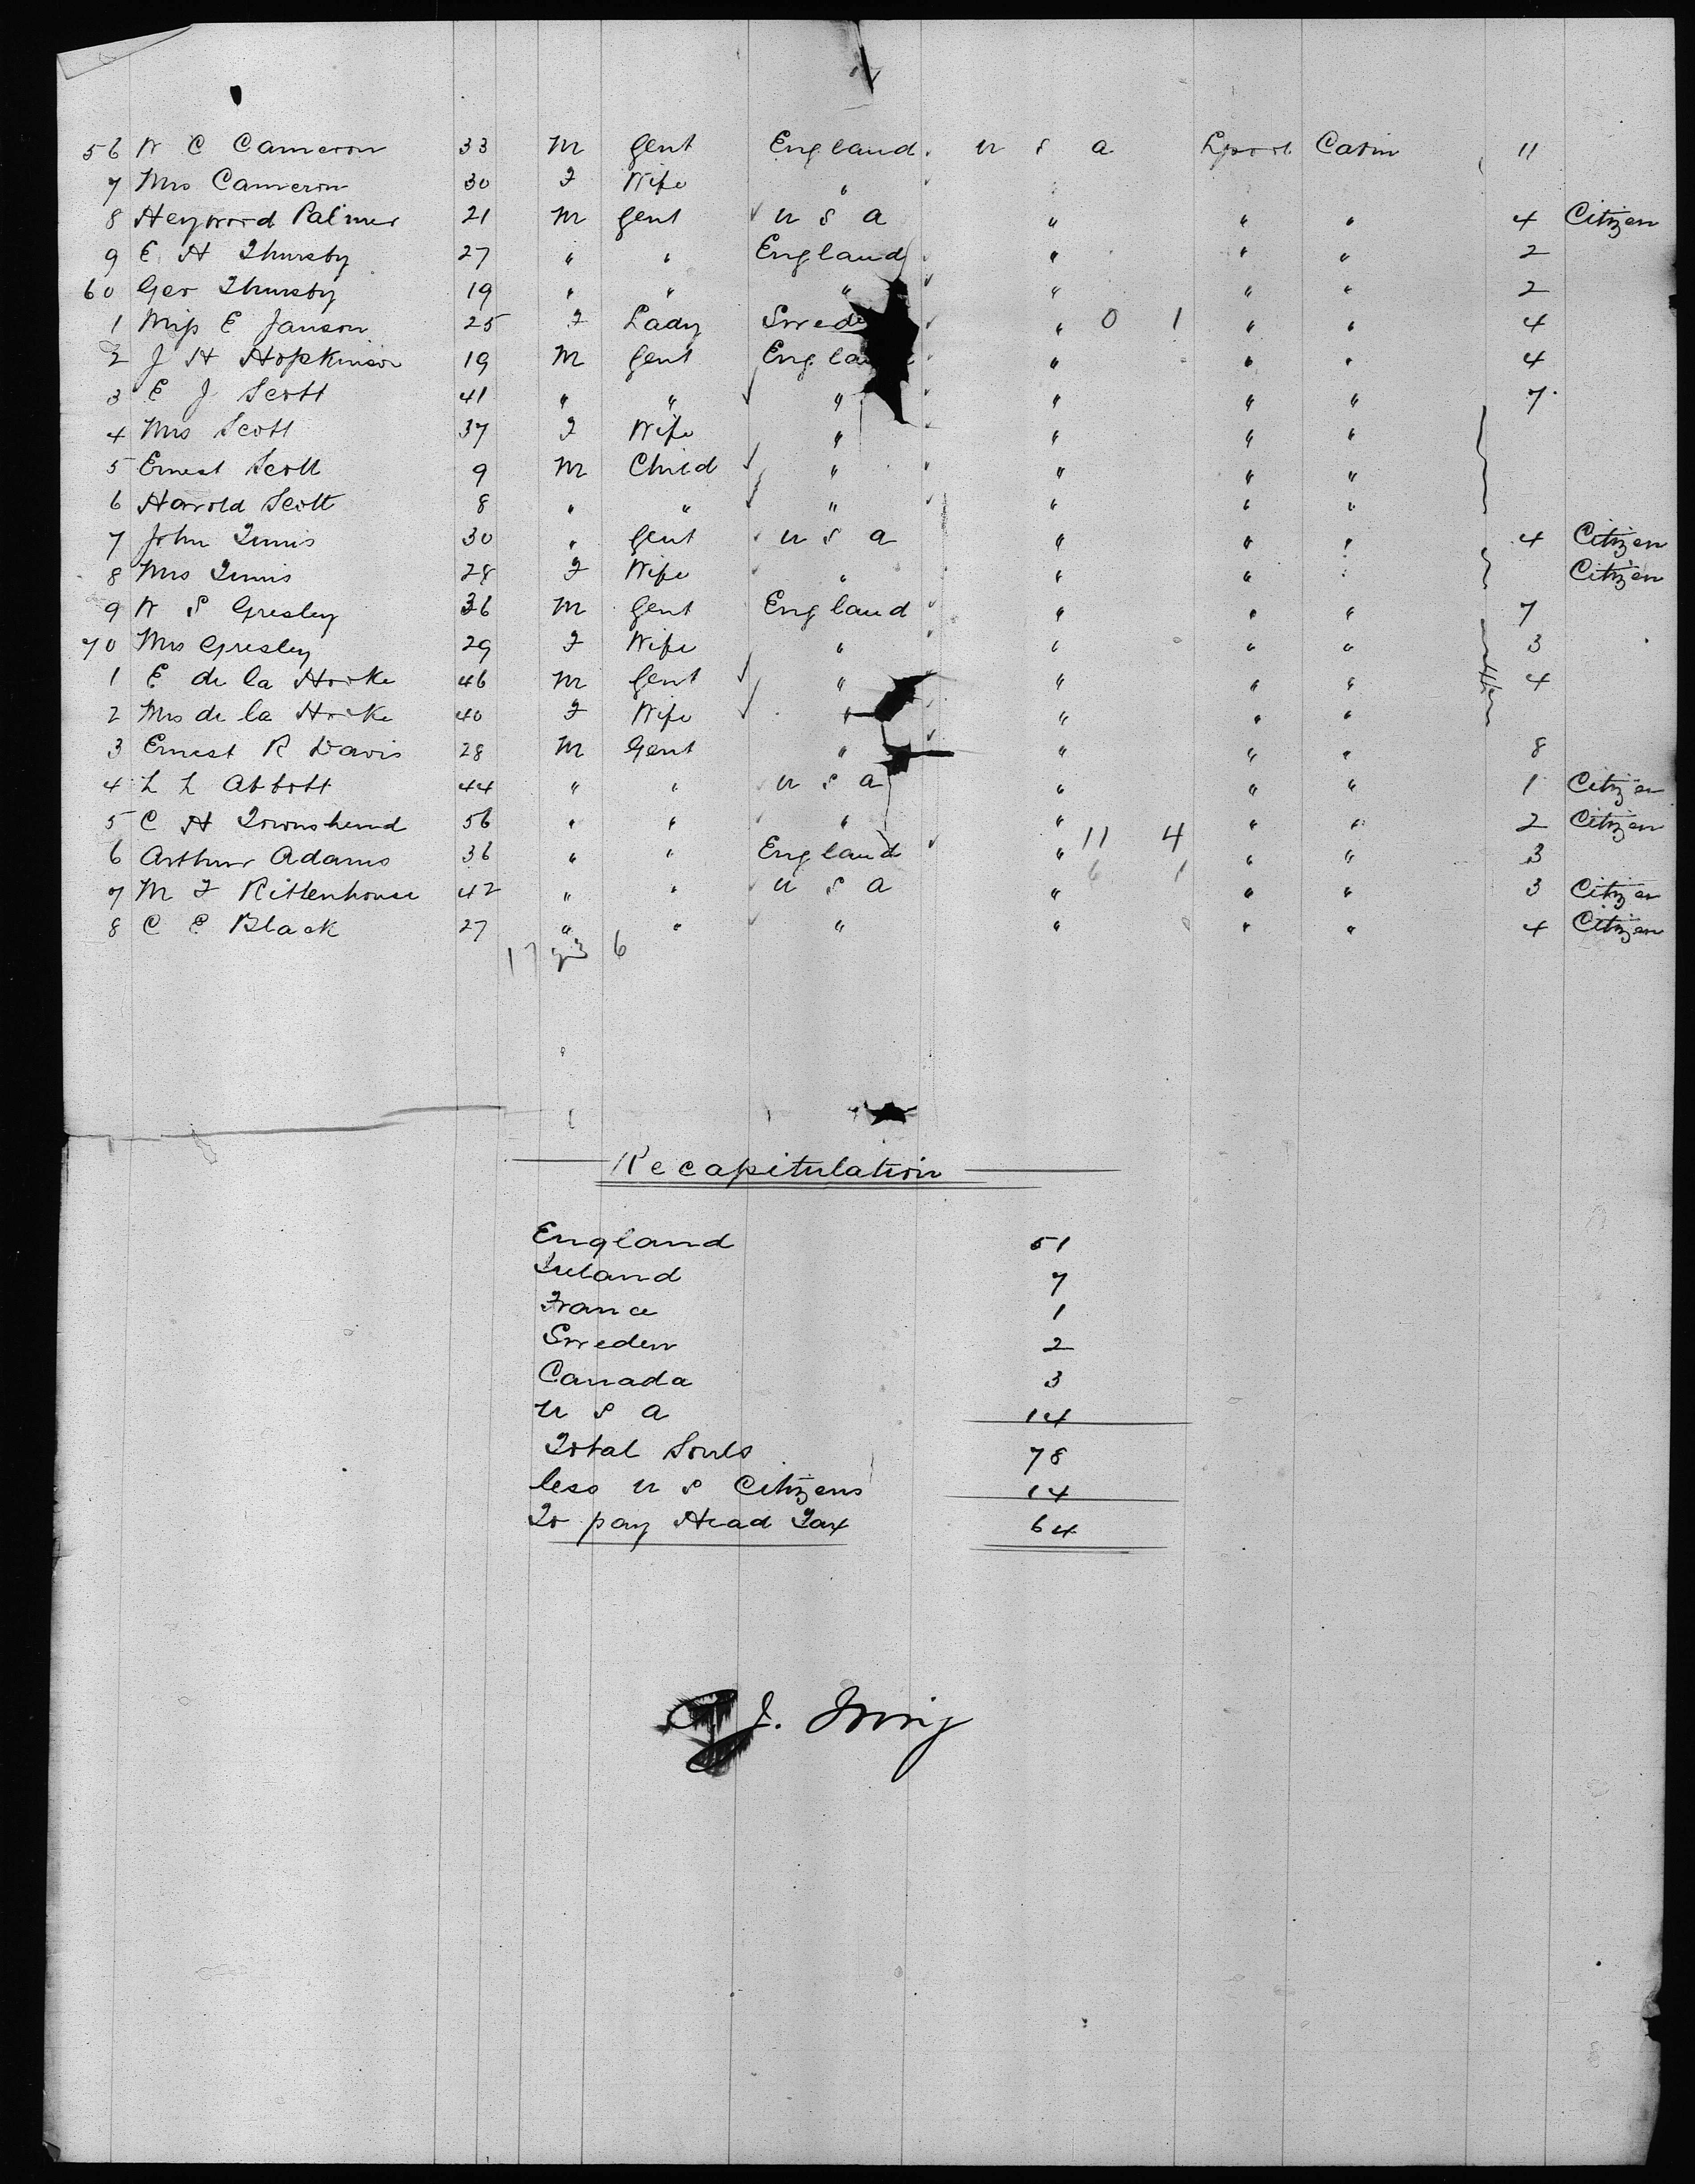 56 W C Cameron 33 M Gent England U S A Lpool Cabin 11
7 Mrs Cameron 30 F Wife "
8 Heyword Palmer 21 M Gent U S A " " " 4 Citizen
9 E H Thursby 27 " " England " " " 2
60 Geo Thursby 19 " " " " " " 2
1 Miss E Janson 25 F Lady Swede " 0 1 " " 4
2 J H Hopkinson 19 M Gent Engla " " " 4
3 E J Scott 41 " " " " " " 7
4 Mrs Scott 37 F Wife " " " "
5 Ernest Scott 9 M Child " " " "
6 Harold Scott 8 " " " " " "
7 John Tunis 30 " Gent U S A " " " 4 Citizen
8 Mrs Tunis 28 F Wife " " " " Citizen
9 W S Gresley 36 M Gent England " " " 7
70 Mrs Gresley 29 F Wife " " " " 3
1 E de la Hooke 46 M Gent " " " " 4
2 Mrs de la Hooke 40 F Wife " " " "
3 Ernest R Davis 28 M Gent " " " " 8
4 L L Abbott 44 " " U S A " " " 1 Citizen
5 C H Townshend 56 " " " " " " 2 Citizen
11 4
6 Arthur Adams 36 " " England " " " 3
6 1
7 M F Rittenhouse 42 " " U S A " " " 3 Citizen
8 C E Black 27 " " " " " " 4 Citizen
17 6
Recapitulation
England 51
Ireland 7
France 1
Sweden 2
Canada 3
U S A 14
Total Souls 78
less U S Citizens 14
To pay Head Tax 64
J. Irving